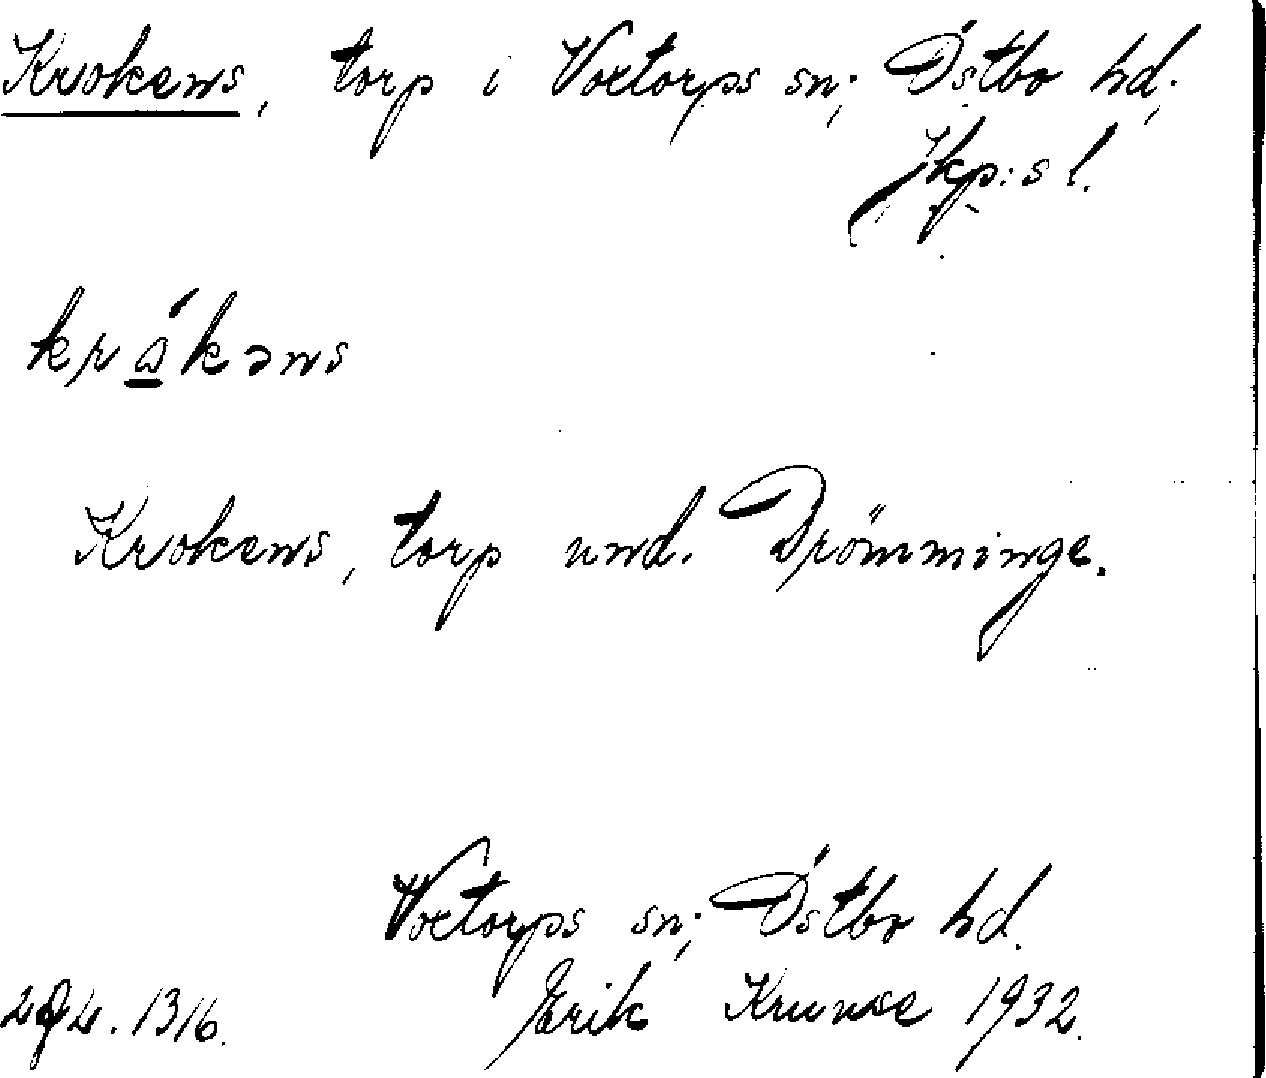 Krokens, torp i Voxtorps sn; Östbo hd;
Jkp:s l.
kråkəns
Krokens, torp und. Drömminge.
Voxtorps sn; Östbo hd.
294. 1316. Erik Krunse 1932.